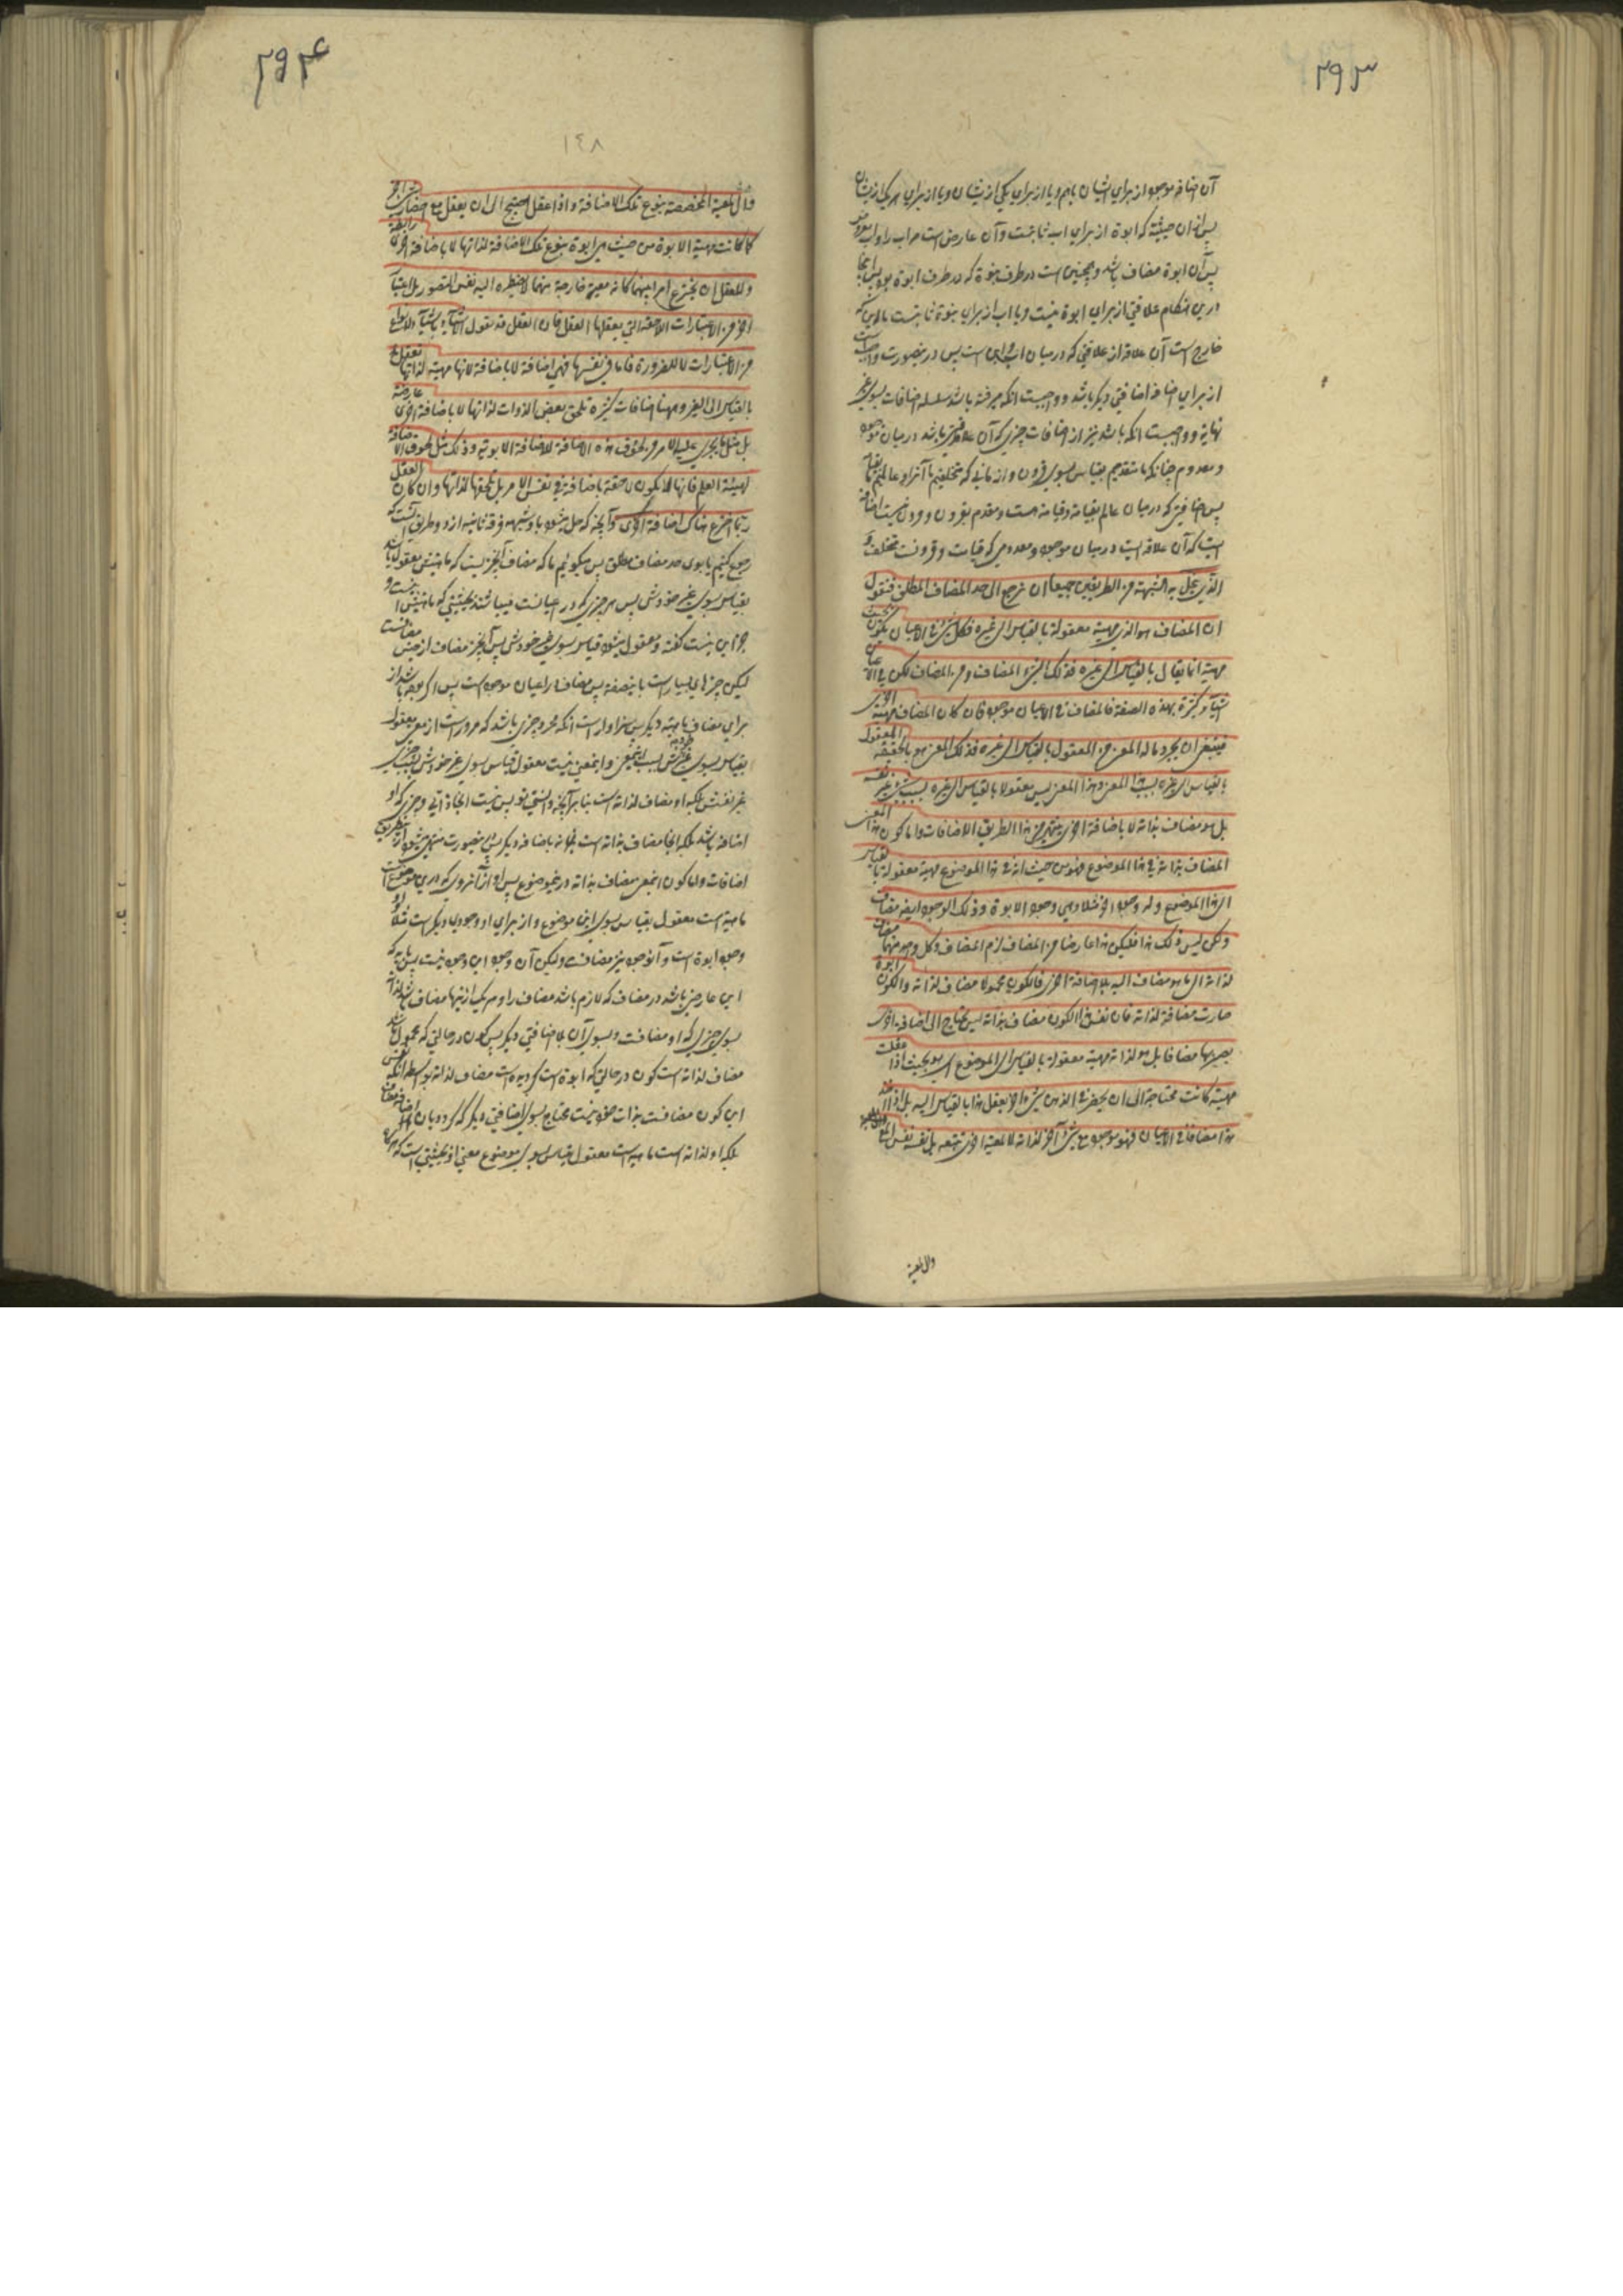 ٢٩٣
آن اضافه موجود از برای ایشان باهم و یا از برای یکی از ایشان و یا از برای هر یک از ایشان
پس از آن حیثیة که ابوة از برای اب ثابتست و آن عارض است مر اب را و اب معروض
پس آن ابوة مضاف باشد و همچنین است در طرف بنوة که در طرف ابوة بود پس اینجا
درین هنگام علاقتی از برای ابوة نیست و یا اب از برای بنوة ثابتست
خارج است آن علاقه از علاقتی که در میان اب و ابن است پس درینصورت واجب است
از برای اضافه اضافتی دیگر باشد و واجبست آنکه میرفته باشد سلسله اضافات بسوی غیر
نهایة و واجبست آنکه باشد نیز از اضافات چیزی که آن علاقتی باشد در میان موجود
و معدوم چنانکه ما متقدمیم بقیاس بسوی قرون و ازمانی که متخلفیم با آنرا و عالمیم بقیامة
پس اضافتی که در میان عالم بقیامة و قیامة است و متقدم بقرون و قرون نیست اضافه
ایست که آن علاقه ایست در میان موجود و معدومی که قیامت و قرونست متخلف و
الذی یحل به الشبهة من الطریقین جمیعا ان نرجع الی حد المضاف المطلق فنقول
ان المضاف هو الذی مهیته معقولة بالقیاس الی غیره فکل شیء فی الاعیان یکون بحیث
مهیته انما یقال بالقیاس الی غیره فذلک الشیء المضاف و من المضاف لکن فی الاعیان
اشیآء کثیرة بهذه الصفة فالمضاف فی الاعیان موجود فان کان المضاف مهیته اخری
فینبغی ان یجرد ما له المعنی من المعقول بالقیاس الی غیره فذلک المعنی هو بالحقیقة المعقول
بالقیاس الی غیره بسبب هذا المعنی و هذا المعنی لیس معقولا بالقیاس الی غیره بسبب شیء غیر نفسه
بل هو مضاف بذاته لا باضافة اخری ینتهی من هذا الطریق الاضافات و اما کون هذا المعنی
المضاف بذاته فی هذا الموضوع فهو من حیث انه فی هذا الموضوع مهیته معقولة بالقیاس
الی هذا الموضوع و له وجود آخر مثلا و هی وجود الابوة و ذلک الوجود ایضا مضاف
و لکن لیس ذلک هذا فلیکن هذا عارضا من المضاف لزم المضاف و کل واحد منهما مضاف
لذاته الی ما هو مضاف الیه بلا اضافة اخری فالکون محمولا مضاف لذاته و الکون ابوة
صارت مضافة لذاته فان نفس هذا الکون مضاف بذاته لیس یحتاج الی اضافة اخری
یصیر بها مضافا بل هو لذاته مهیته معقولة بالقیاس الی الموضوع ای هو بحیث اذا عقلت
مهیته کانت محتاجة الی ان یحضر فی الذهن شیء آخر یعقل هذا بالقیاس الیه بل اذا اخذ
هذا مضافا فی الاعیان فهو موجود مع شیء آخر لذاته لا لمعیة اخری تتبعه بل نفسه نفس المع
والمعیة
٢٩۴
١٤٨
والمعیة المخصصة بنوع تلک الاضافة و اذا عقل احتیج الی ان یعقل مع احضار شیء آخر
کما کانت مهیة الابوة من حیث هی ابوة بنوع تلک الاضافة لذاتها لا باضافة اخری رابطة
و للعقل ان یخترع امرا بینهما کانه معیة خارجة منهما لا یضطره الیه نفس التصور بل اعتبار
آخر من الاعتبارات اللاحقة التی یعقلها العقل فان العقل قد یقرن اشیآء باشیآء لانواع
من الاعتبارات لا للضرورة فاما فی نفسها فهی اضافة لا باضافة لانها مهیة لذاتها تعقل
بالقیاس الی الغیر و ههنا اضافات کثیرة تلحق بعض الذوات لذاتها لا باضافة اخری عارضة
بل مثل ما یجری علیه الامر من لحوق هذه الاضافة للاضافة الابویة و ذلک مثل لحوق الاضافة
لهیئة العلم فانها لا یکون لاحقة باضافة فی نفس الامر بل تلحقها لذاتها و ان کان العقل
ربما اخترع هناک اضافة اخری و آنچه که حل میشود باو شبهه فرقه ثانیه از دو طریق آنست که
رجوع کنیم ما بسوی حد مضاف مطلق پس میگوئیم ما که مضاف آنچیزیست که ماهیتش معقول باشد
بقیاس بسوی غیر خودش پس هر چیزی که در اعیانست میباشد بحیثیتی که ماهیتش اینست و
جز این نیست گفته و معقول میشود بقیاس بسوی غیر خودش پس آنچیز مضاف از جنس مضافست
لیکن چیزهای بسیار است باینصفة پس مضاف در اعیان موجود است پس اگر بوده باشد از
برای مضاف ماهیة دیگر پس سزاوار است آنکه مجرد چیزی باشد که مر او راست از معنی معقول
بقیاس بسوی غیر خودش بسبب اینمعنی و اینمعنی نیست معقول بقیاس بسوی غیر خودش بسبب چیزی
غیر نفسش بلکه او مضاف لذاته است بنابر آنچه دانستی تو پس نیست اینجا ذاتی و چیزی که او
اضافه باشد بلکه اینجا مضاف بذاته است نه باضافه دیگر پس درینصورت منتهی میشود از اینطریق
اضافات و اما کون اینمعنی مضاف بذاته در موضوع پس او از آنروی که درین موضوعست
ماهیة است معقول بقیاس بسوی این موضوع و از برای او وجودی دیگر است مثلا
وجود ابوة است و آنوجود نیز مضافست و لیکن آن وجود این وجود نیست پس باید که
این عارض باشد در مضاف که لازم باشد مضاف را و هر یک از اینها مضاف باشد لذاته
بسوی چیزی که او مضافست و بسوی آن بلا اضافتی دیگر پس کون در حالتی که محمول باشد
مضاف لذاته است کون در حالتی که ابوة است گردیده است مضاف لذاته بواسطه آنکه نفس
این کون مضافست بذات خود نیست محتاج بسوی اضافتی دیگر که گردد بآن اضافه مضاف
بلکه او لذاته است ماهیة است معقول بقیاس بسوی موضوع معنی او بحیثیتی است که هرگاه